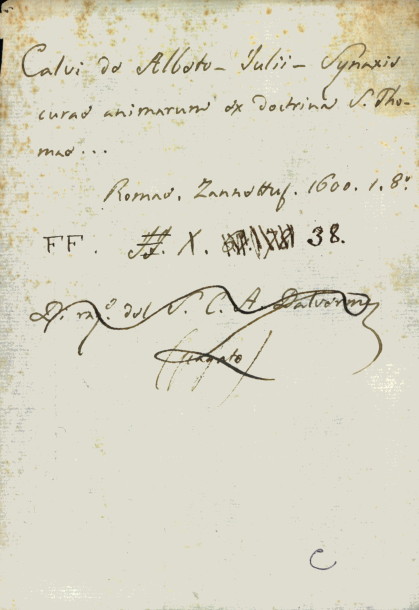 Calvi de Alberto - Julii - Synaxis
curae animarum ex doctrina S. Tho-
mae...
Romae. Zannettus. 1600. 1. 8.º
FF. X. 38.
Di m.º del S. C. A.
C